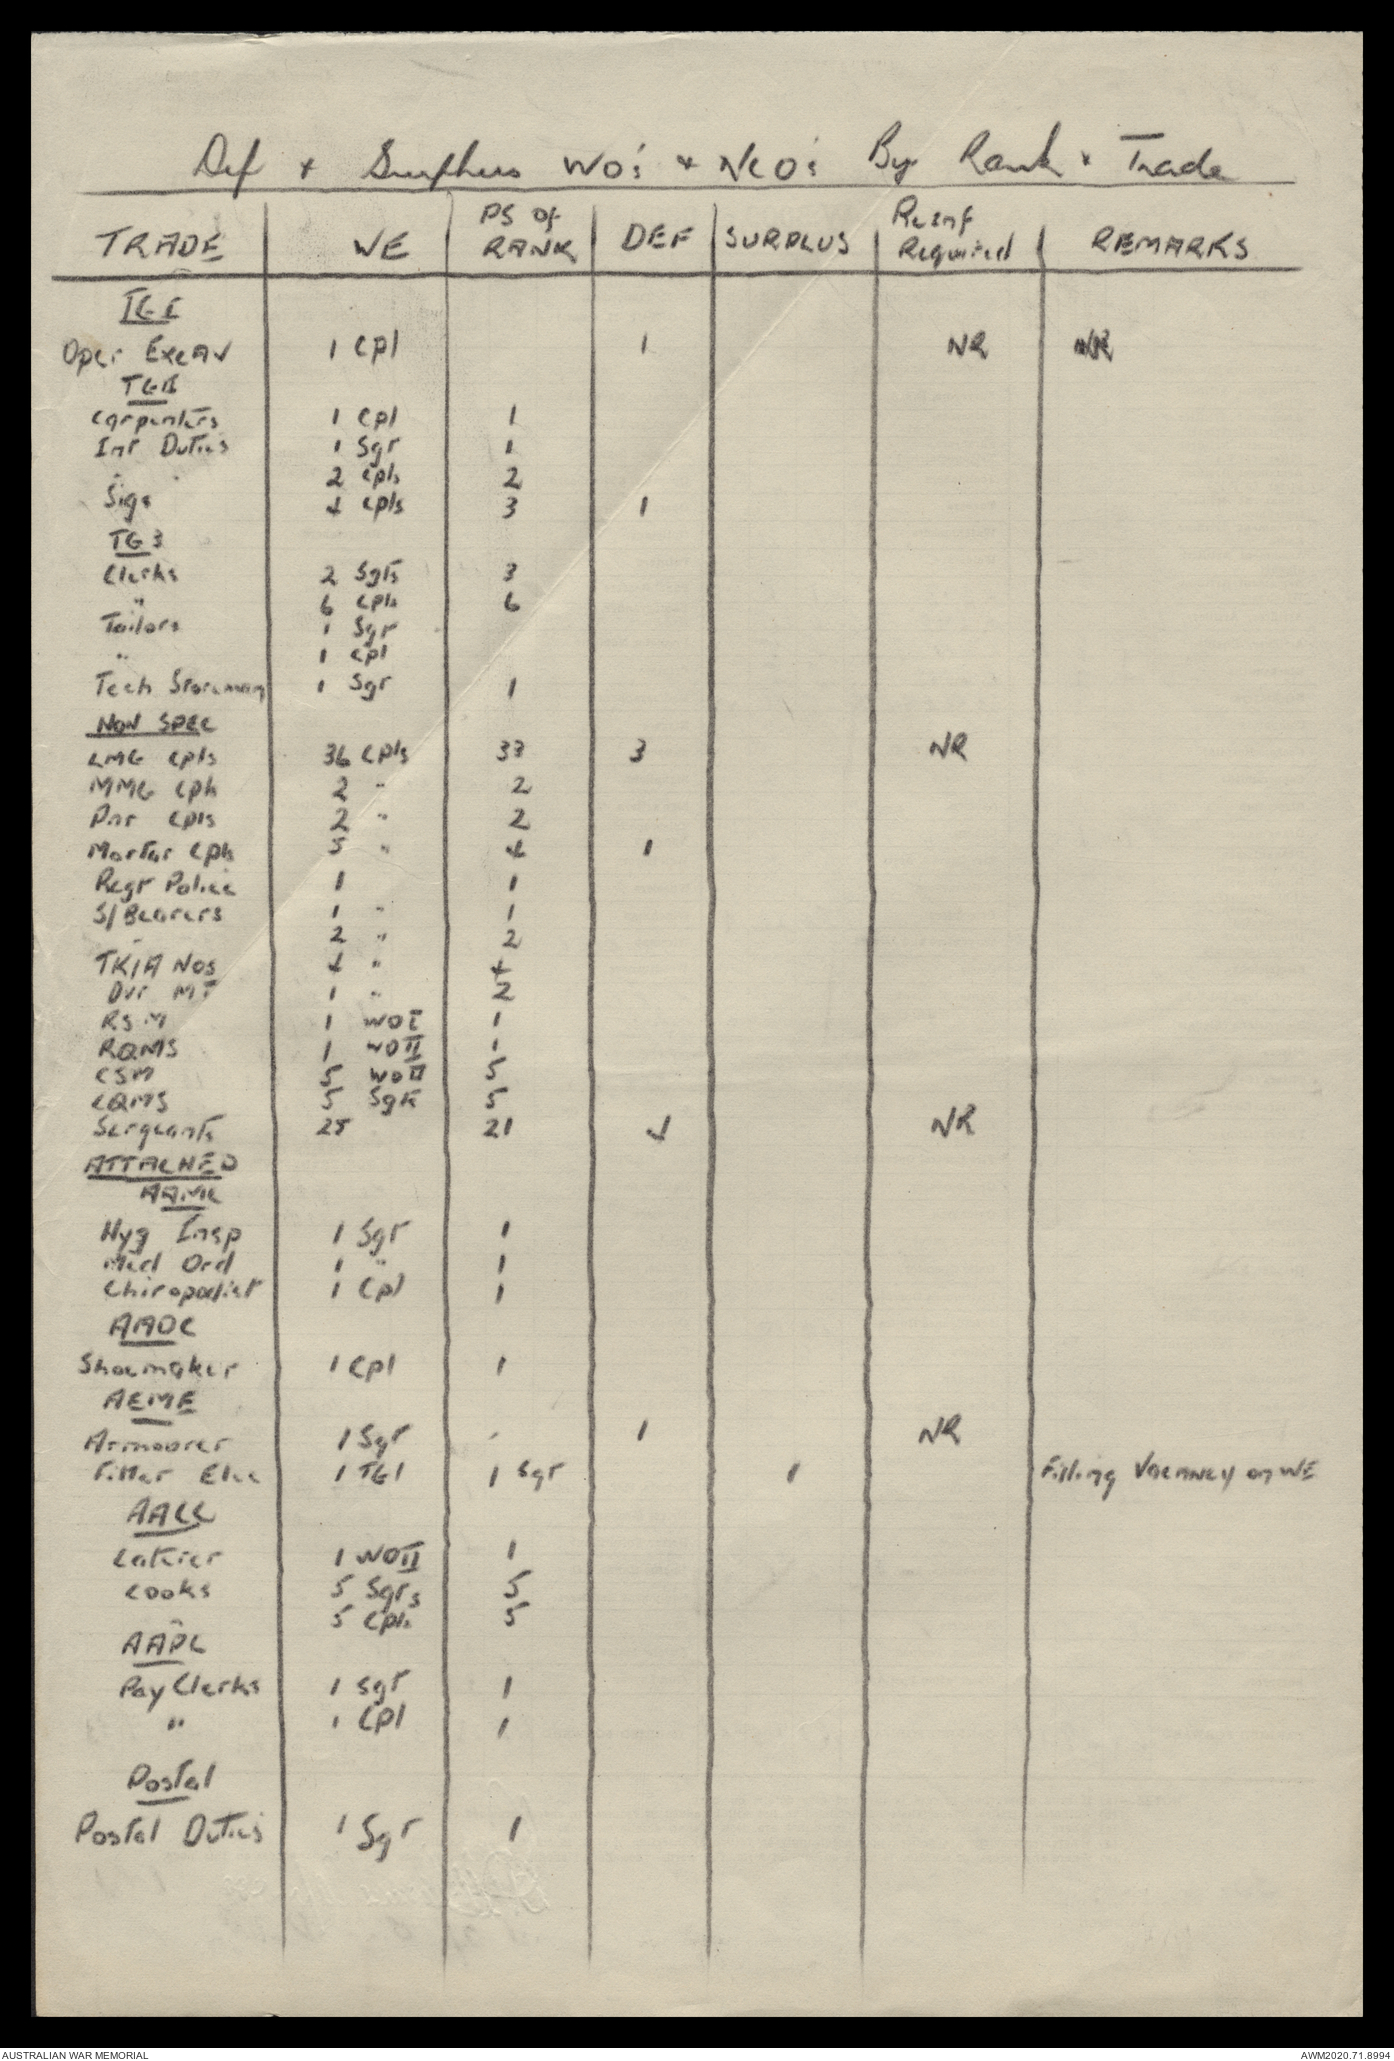 Def + Surplus WO's + NCO's By Rank + Trade
TRADE WE PS of RANK DEF SURPLUS Reinf Required REMARKS
TG I
Oper Excav 1 Cpl 1 NR
TG II
Carpenters 1 Cpl 1
Int Duties 1 Sgt 1
" 2 Cpls 2
Sigs 4 Cpls 3 1
TG 3
Clerks 2 Sgts 3
" 6 Cpls 6
Tailors 1 Sgt
" 1 Cpl
Tech Storeman 1 Sgt 1
NON SPEC
LMG Cpls 36 Cpls 33 3 NR
MMG Cpls 2 " 2
Pnr Cpls 2 " 2
Mortar Cpls 5 " 4 1
Regt Police 1 1
S/Bearers 1 " 1
" 2 " 2
TK/A Nos 4 " 4
Dvr MT 1 " 2
RSM 1 WOI 1
RQMS 1 WOII 1
CSM 5 WOII 5
CQMS 5 Sgts 5
Sergeants 25 21 4 NR
ATTACHED
AAMC
Hyg Insp 1 Sgt 1
Med Ord 1 " 1
Chiropodist 1 Cpl 1
AAOC
Shoemaker 1 Cpl 1
AEME
Armourer 1 Sgt - 1 NR
Fitter Elec 1 TG1 1 Sgt 1 Filling Vacancy on WE
AACC
Caterer 1 WOII 1
Cooks 5 Sgts 5
" 5 Cpls 5
AAPC
Pay Clerks 1 Sgt 1
" 1 Cpl 1
Postal
Postal Duties 1 Sgt 1
AUSTRALIAN WAR MEMORIAL AWM2020.71.8994